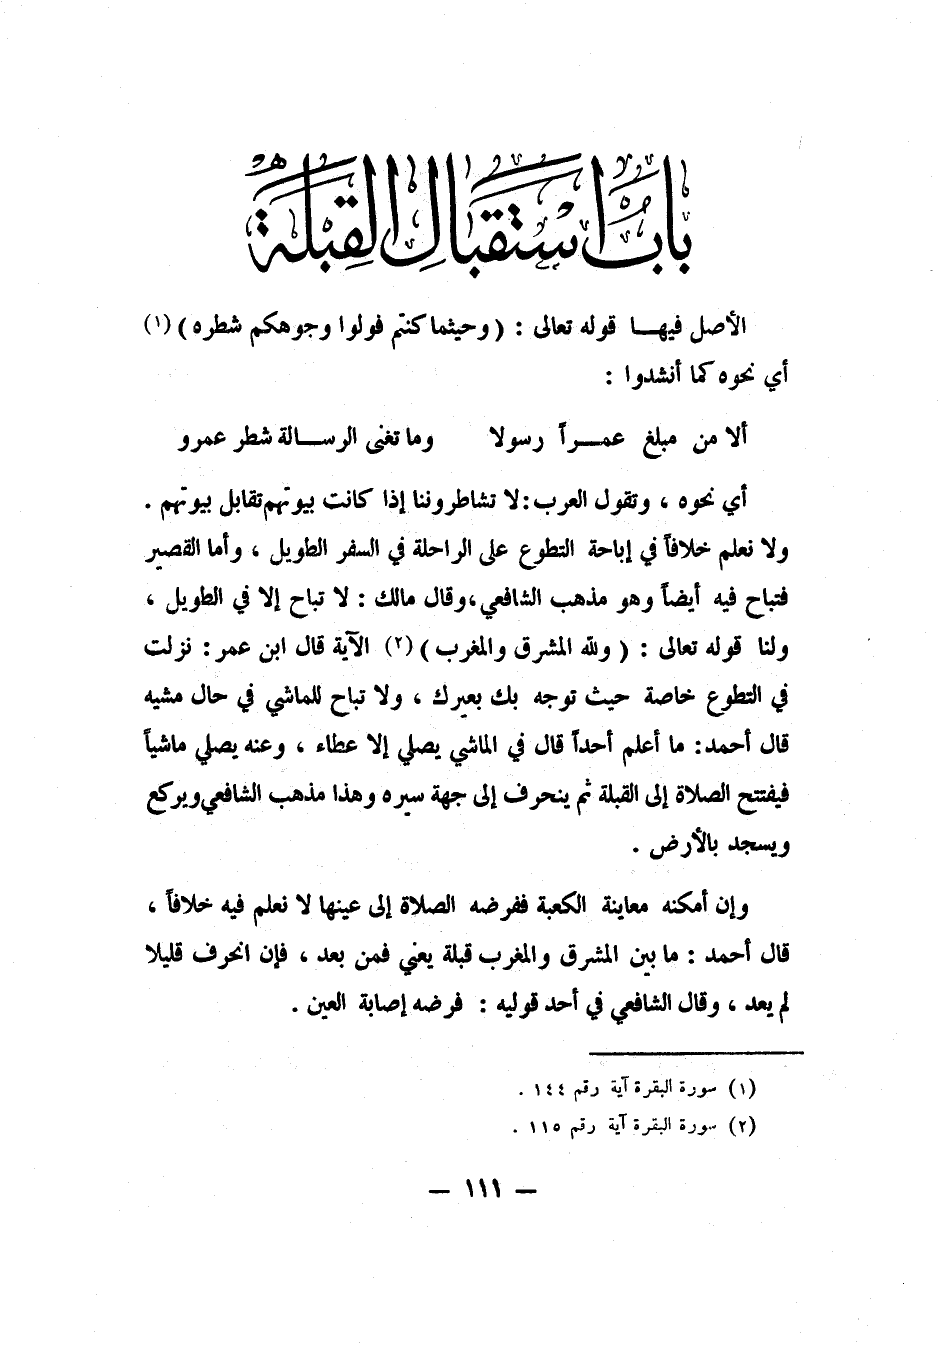 باب استقبال القبلة
الأصل فيهــا قوله تعالى : ( وحيثما كنتم فولوا وجوهكم شطره ) (١)
أي نحوه كما أنشدوا :
ألا من مبلغ عمــراً رسولا وما تغنى الرســالة شطر عمرو
أي نحوه ، وتقول العرب : لا تشاطروننا إذا كانت بيوتهم تقابل بيوتهم .
ولا نعلم خلافاً في إباحة التطوع على الراحلة في السفر الطويل ، وأما القصير
فتباح فيه أيضاً وهو مذهب الشافعي ، وقال مالك : لا تباح إلا في الطويل ،
ولنا قوله تعالى : ( ولله المشرق والمغرب ) (٢) الآية قال ابن عمر : نزلت
في التطوع خاصة حيث توجه بك بعيرك ، ولا تباح للماشي في حال مشيه
قال أحمد : ما أعلم أحداً قال في الماشي يصلي إلا عطاء ، وعنه يصلي ماشياً
فيفتتح الصلاة إلى القبلة ثم ينحرف إلى جهة سيره وهذا مذهب الشافعي ويركع
ويسجد بالأرض .
وإن أمكنه معاينة الكعبة ففرضه الصلاة إلى عينها لا نعلم فيه خلافاً ،
قال أحمد : ما بين المشرق والمغرب قبلة يعني فمن بعد ، فإن انحرف قليلا
لم يعد ، وقال الشافعي في أحد قوليه : فرضه إصابة العين .
(١) سورة البقرة آية رقم ١٤٤ .
(٢) سورة البقرة آية رقم ١١٥ .
— ١١١ —